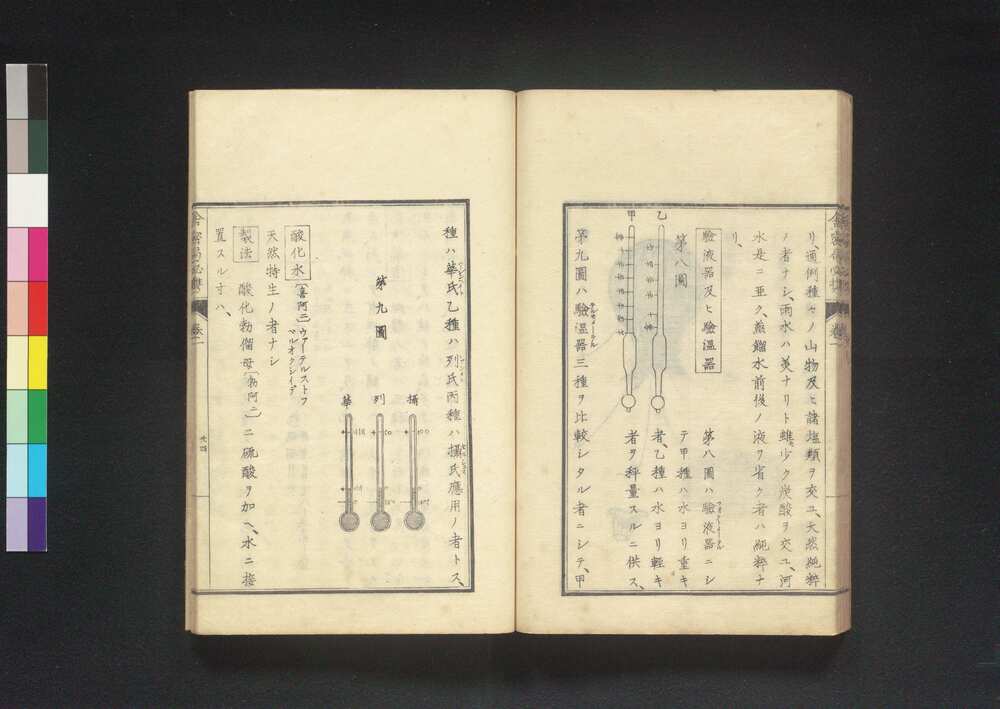 リ、通例種々ノ山物及ヒ諸塩類ヲ交ユ、天然純粋
ノ者ナシ、雨水ハ美ナリト雖少ク炭酸ヲ交ユ、河
水是ニ亜ク、蒸餾水前後ノ液ヲ省ク者ハ純粋ナ
リ、
驗液器及ヒ驗温器
第八圖
乙
甲
第八圖ハ驗液器ニシ
テ甲種ハ水ヨリ重キ
者、乙種ハ水ヨリ軽キ
者ヲ秤量スルニ供ス、
第九圖ハ驗温器三種ヲ比較シタル者ニシテ、甲
種ハ華氏乙種ハ列氏丙種ハ攝氏應用ノ者トス、
第九圖
攝
列
華
酸化水
〔喜阿二〕ウァーテルストフ
ペルオクシイデ
天然特生ノ者ナシ
製法
酸化勃僧母〔勃阿二〕ニ硫酸ヲ加ヘ、水ニ接
置スル寸ハ、